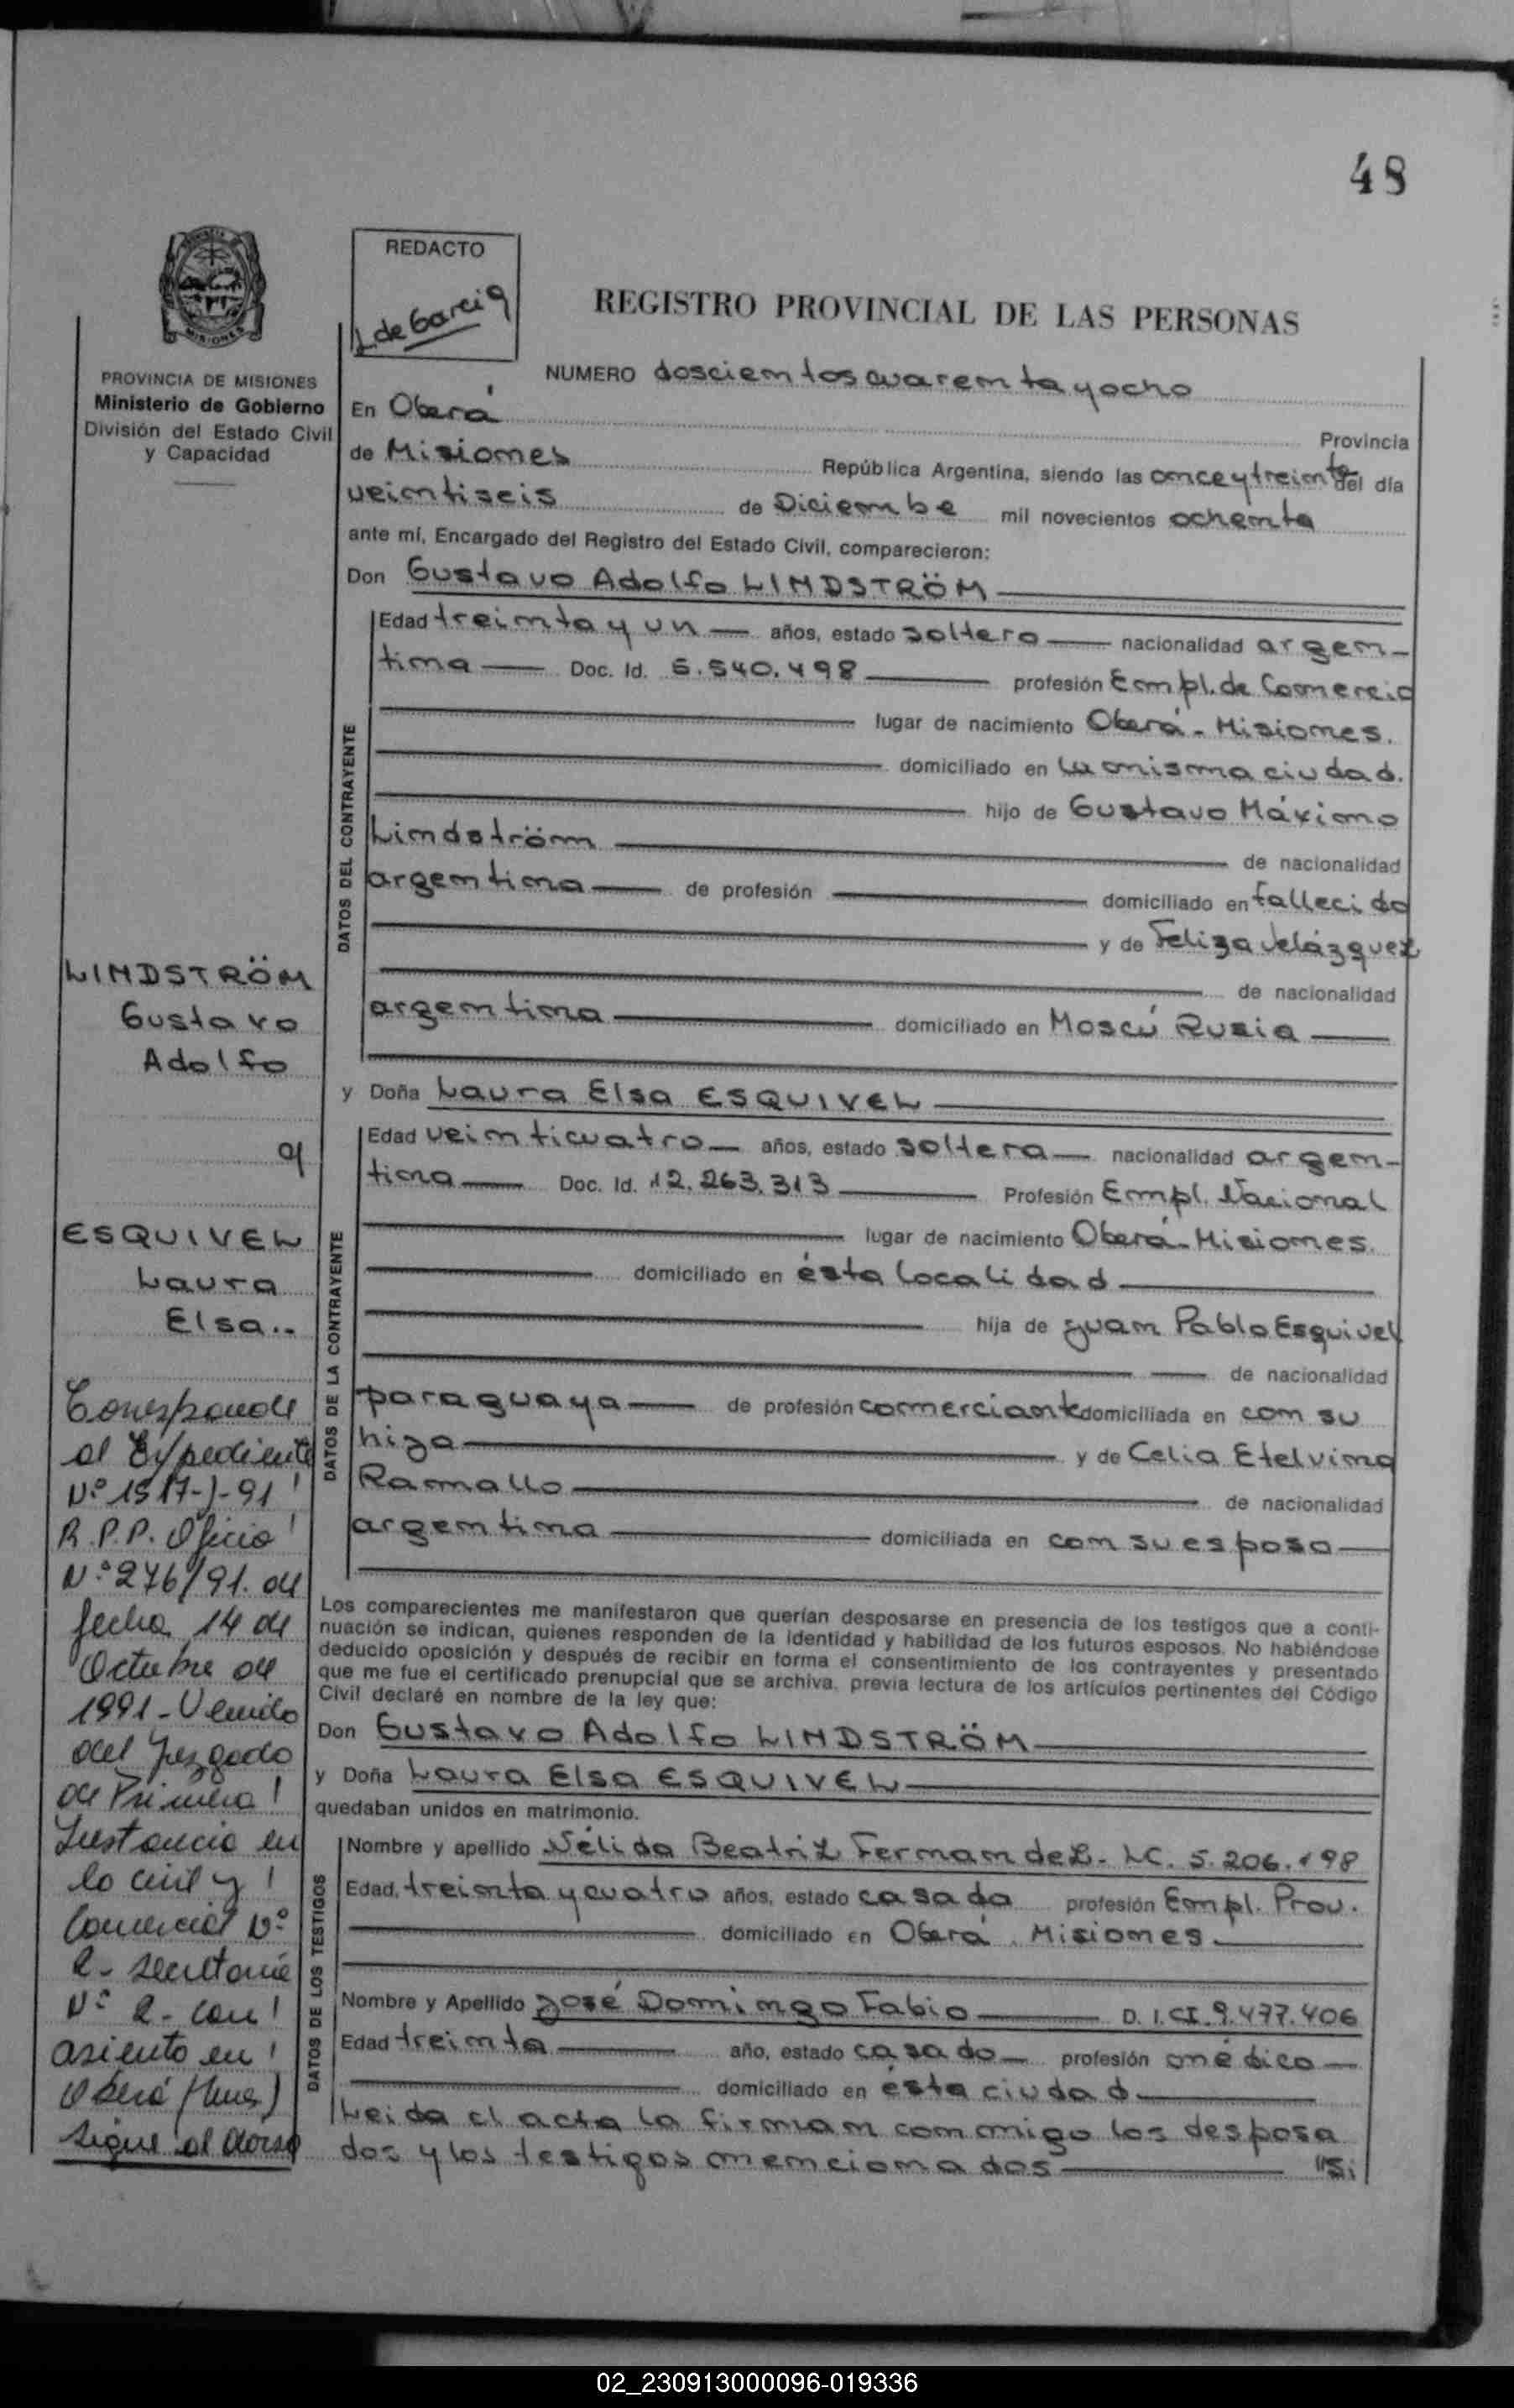 48
REDACTO
L de Garcia
REGISTRO PROVINCIAL DE LAS PERSONAS
PROVINCIA DE MISIONES
Ministerio de Gobierno
División del Estado Civil
y Capacidad
NUMERO doscientos cuarenta y ocho
En Oberá Provincia
de Misiones República Argentina, siendo las once y treinta del día
veintiseis de Diciembe mil novecientos ochenta
ante mí, Encargado del Registro del Estado Civil, comparecieron:
Don Gustavo Adolfo LINDSTRÖM
DATOS DEL CONTRAYENTE
Edad treinta y un años, estado soltero nacionalidad argen-
tina Doc. Id. 5.540.498 profesión Empl. de Comercio
lugar de nacimiento Oberá - Misiones.
domiciliado en la misma ciudad.
hijo de Gustavo Máximo
Lindström de nacionalidad
argentina de profesión domiciliado en fallecido
y de Feliza Velázquez
de nacionalidad
argentina domiciliado en Moscú Rusia
y Doña Laura Elsa ESQUIVEL
DATOS DE LA CONTRAYENTE
Edad veinticuatro años, estado soltera nacionalidad argen-
tina Doc. Id. 12.263.313 Profesión Empl. Nacional
lugar de nacimiento Oberá - Misiones.
domiciliado en ésta localidad
hija de Juan Pablo Esquivel
de nacionalidad
paraguaya de profesión comerciante domiciliada en con su
hija y de Celia Etelvina
Ramallo de nacionalidad
argentina domiciliada en con su esposo
Los comparecientes me manifestaron que querían desposarse en presencia de los testigos que a conti-
nuación se indican, quienes responden de la identidad y habilidad de los futuros esposos. No habiéndose
deducido oposición y después de recibir en forma el consentimiento de los contrayentes y presentado
que me fue el certificado prenupcial que se archiva, previa lectura de los artículos pertinentes del Código
Civil declaré en nombre de la ley que:
Don Gustavo Adolfo LINDSTRÖM
y Doña Laura Elsa ESQUIVEL
quedaban unidos en matrimonio.
DATOS DE LOS TESTIGOS
Nombre y apellido Nélida Beatriz Fernandez - LC. 5.206.198
Edad, treinta y cuatro años, estado casada profesión Empl. Prov.
domiciliado en Oberá. Misiones
Nombre y Apellido José Domingo Fabio D. I. CI. 9.477.406
Edad treinta año, estado casado profesión médico
domiciliado en ésta ciudad
Leida el acta la firman conmigo los desposa
dos y los testigos mencionados
LINDSTRÖM
Gustavo
Adolfo
y
ESQUIVEL
Laura
Elsa..
Corresponde
al Expediente
Nº 1517-J-91
R.P.P. Oficio
Nº 276/91. de
fecha 14 de
Octubre de
1991 - Venido
del Juzgado
de Primera
Instancia en
lo civil y
Comercial Nº
2 - Secretaria
Nº 2 - con
asiento en
Oberá (Mnes)
Sigue al dorso
02_230913000096-019336